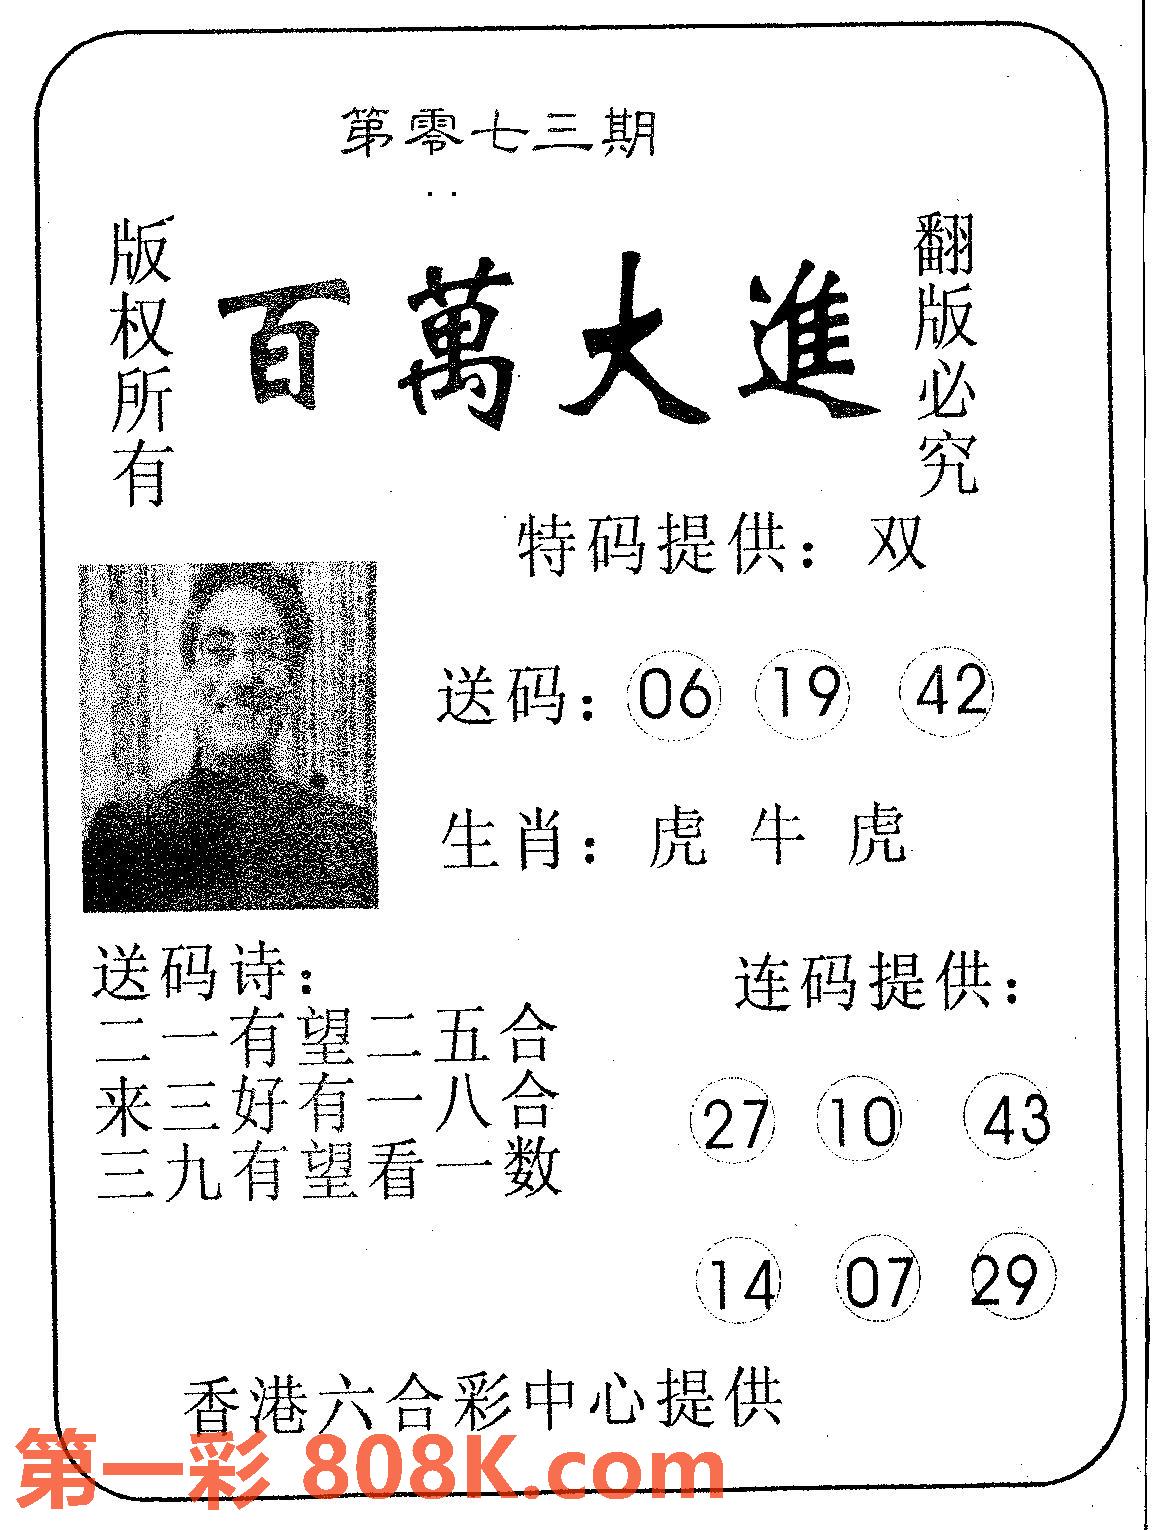 第零七三期
版权所有
百萬大進
翻版必究
特码提供：双
送码：06 19 42
生肖：虎 牛 虎
送码诗：
二一有望二五合
来三好有一八合
三九有望看一数
连码提供：
27 10 43
14 07 29
香港六合彩中心提供
第一彩 808K.com